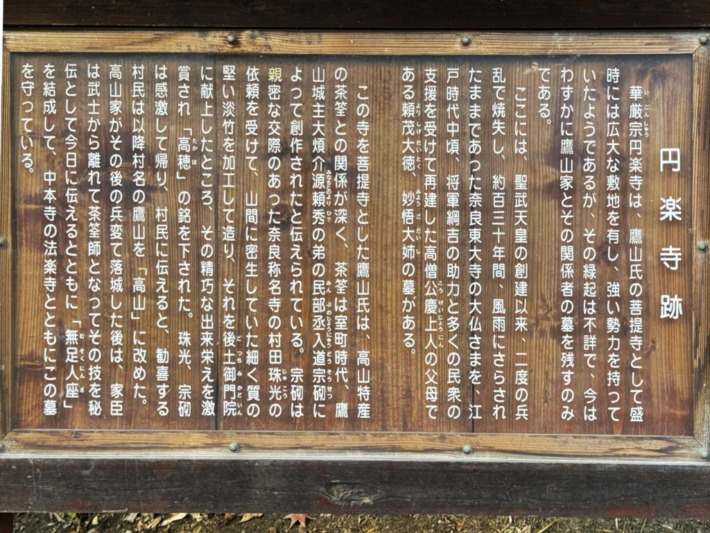 円楽寺跡
華厳宗円楽寺は、鷹山氏の菩提寺として盛
時には広大な敷地を有し、強い勢力を持って
いたようであるが、その縁起は不詳で、今は
わずかに鷹山家とその関係者の墓を残すのみ
である。
ここには、聖武天皇の創建以来、二度の兵
乱で焼失し、約百三十年間、風雨にさらされ
たままであった奈良東大寺の大仏さまを、江
戸時代中頃、将軍綱吉の助力と多くの民衆の
支援を受けて再建した高僧公慶上人の父母で
ある頼茂大徳、妙悟大姉の墓がある。
この寺を菩提寺とした鷹山氏は、高山特産
の茶筌との関係が深く、茶筌は室町時代、鷹
山城主大膳介源頼秀の弟の民部丞入道宗砌に
よって創作されたと伝えられている。宗砌は
親密な交際のあった奈良称名寺の村田珠光の
依頼を受けて、山間に密生していた細く質の
堅い淡竹を加工して造り、それを後土御門院
に献上したところ、その精巧な出来栄えを激
賞され「高穂」の銘を下された。珠光、宗砌
は感激して帰り、村民に伝えると、勧喜する
村民は以降村名の鷹山を「高山」に改めた。
高山家がその後の兵変て落城した後は、家臣
は武士から離れて茶筌師となってその技を秘
伝として今日に伝えるとともに「無足人座」
を結成して、中本寺の法楽寺とともにこの墓
を守っている。